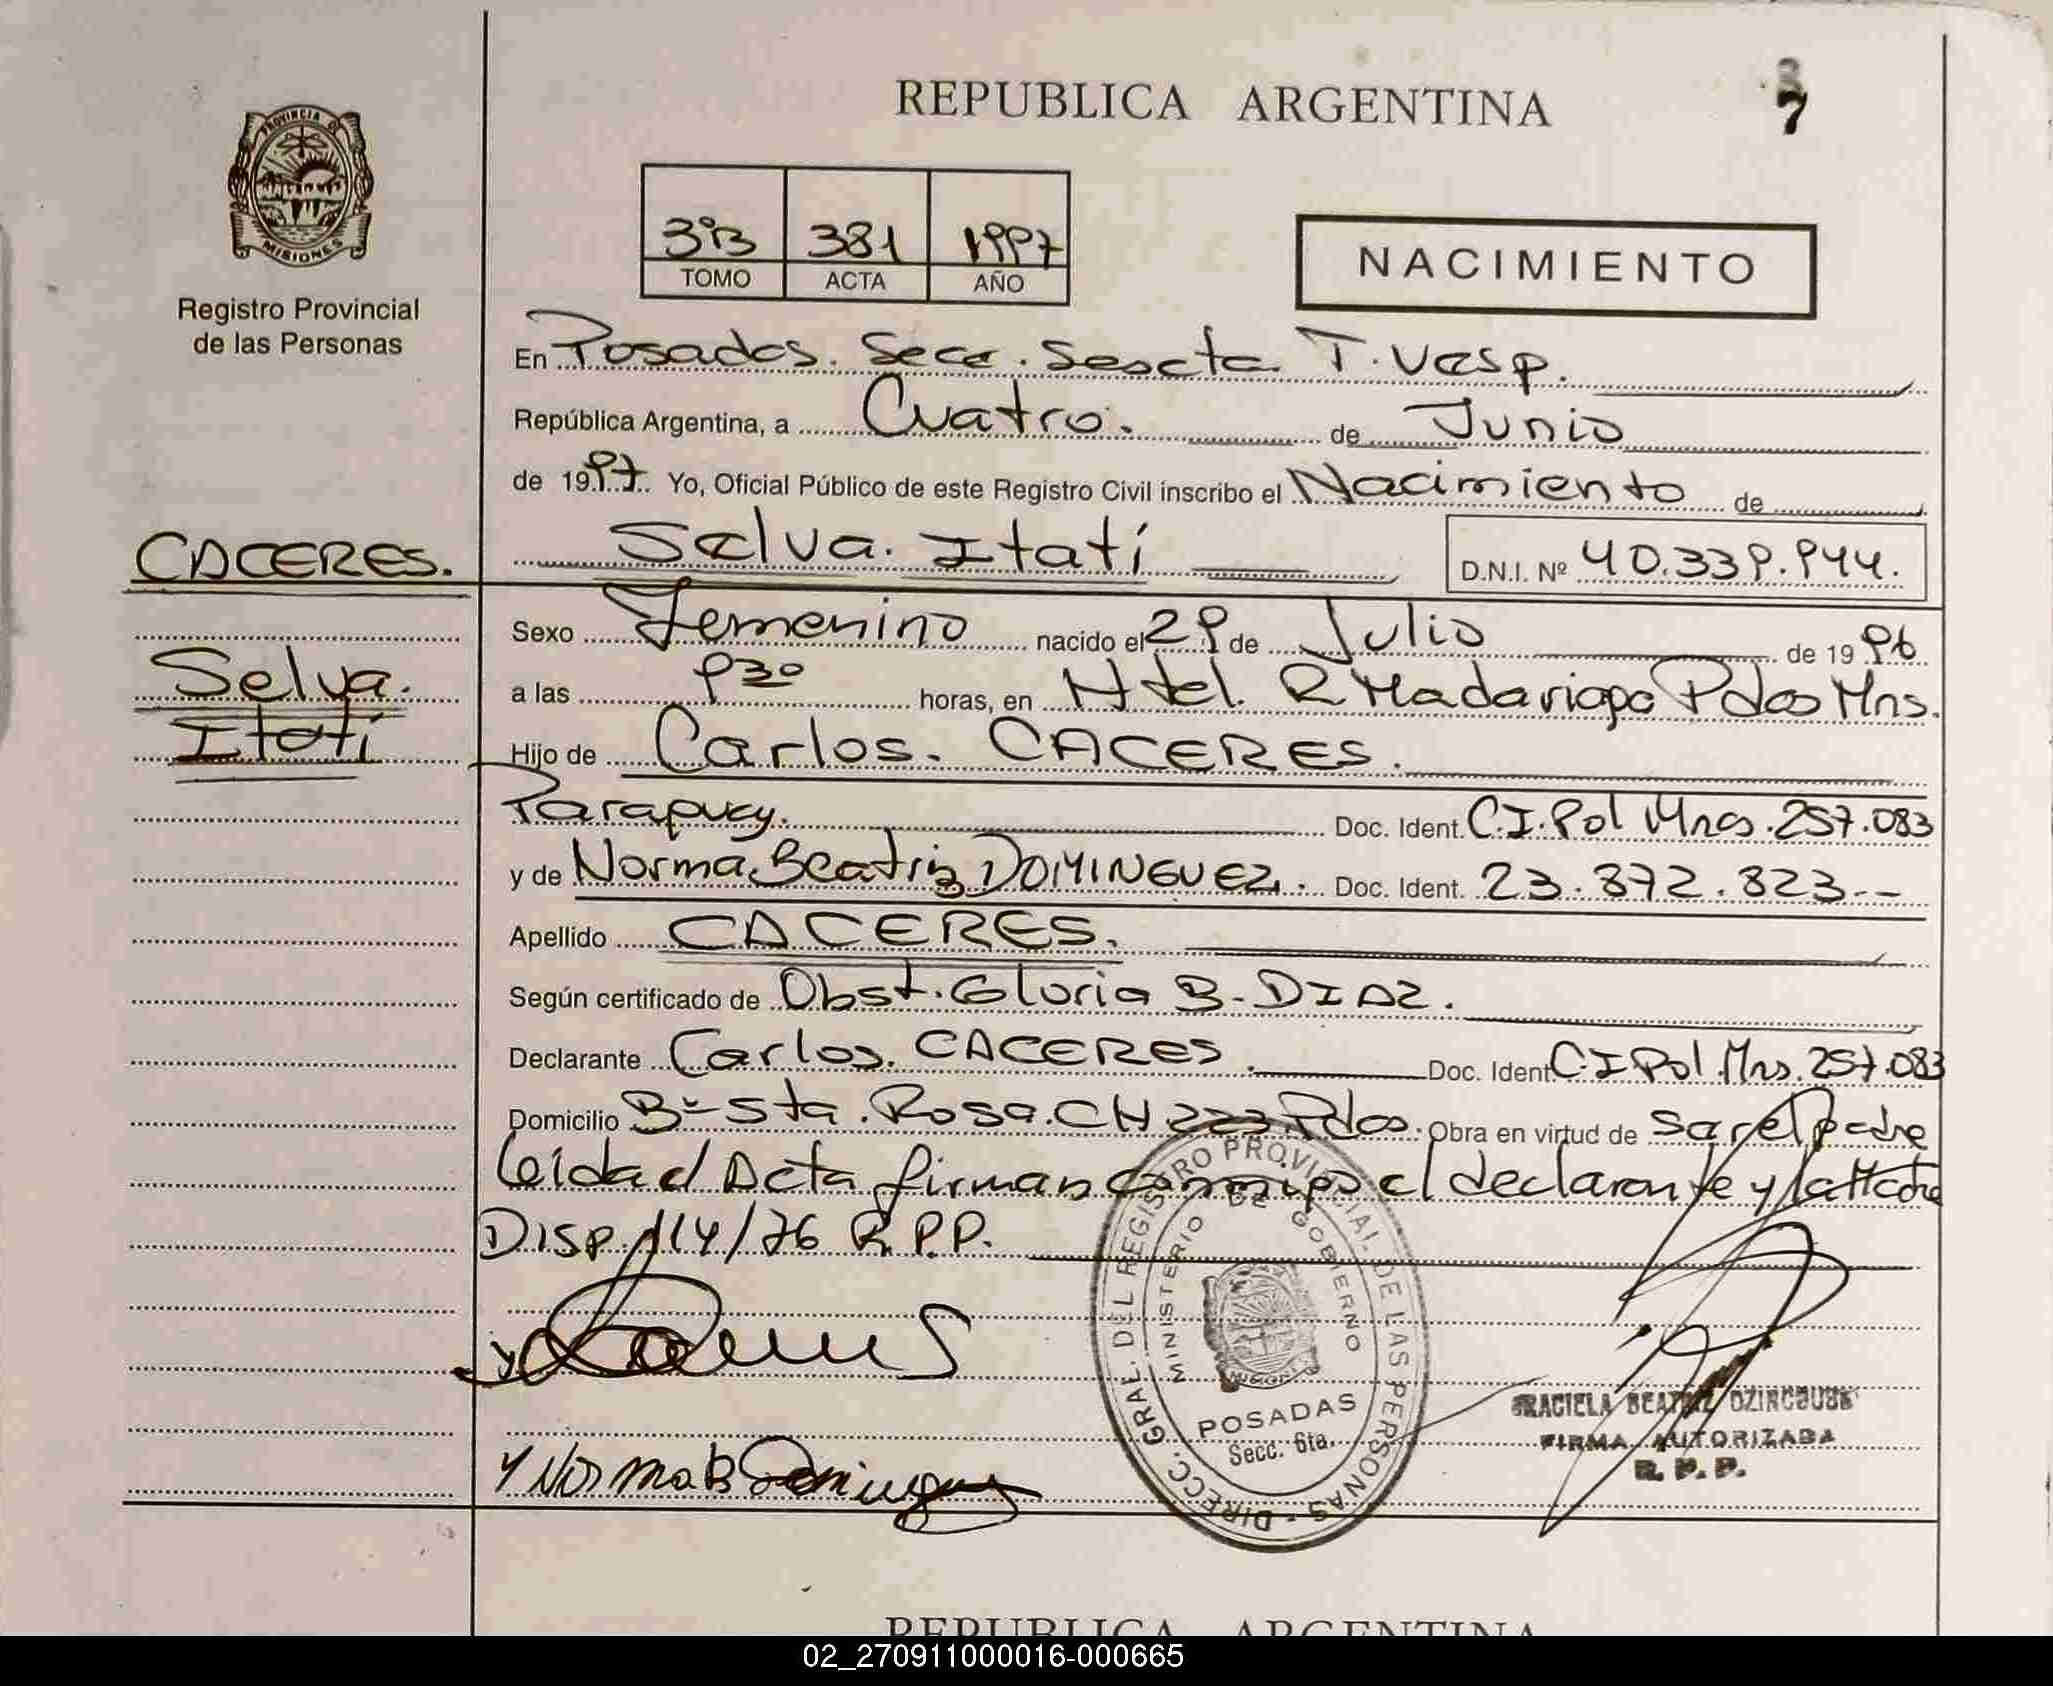 REPUBLICA ARGENTINA
7
PROVINCIA DE
MISIONES
Registro Provincial
de las Personas
3ºB 381 1997
TOMO ACTA AÑO
NACIMIENTO
En Posadas. Secc. Sexcta T. Vesp.
República Argentina, a Cuatro. de Junio
de 1997. Yo, Oficial Público de este Registro Civil inscribo el Nacimiento de
CACERES.
Selva. Itatí
D.N.I. Nº 40.339.944.
Selva.
Itatí
Sexo Femenino nacido el 29 de Julio de 1996
a las 9³⁰ horas, en Htel. R Madariaga Pdas Mns.
Hijo de Carlos. CACERES.
Paraguay. Doc. Ident. C.I. Pol Mnes. 257.083
y de Norma Beatriz DOMINGUEZ. Doc. Ident. 23.872.823--
Apellido CACERES.
Según certificado de Obst. Gloria B. DIAZ.
Declarante Carlos. CACERES. Doc. Ident. C.I Pol. Mns. 257.083
Domicilio Bº Sta. Rosa. CH 223 Pdas. Obra en virtud de Ser el Padre
Leida el Acta firman conmigo el declarante y la Madre
DISP. 114/76 R.P.P.
DIRECC. GRAL. DEL REGISTRO PROVINCIAL DE LAS PERSONAS
MINISTERIO DE GOBIERNO
POSADAS
Secc. 6ta.
GRACIELA BEATRIZ
FIRMA AUTORIZADA
R. P. P.
Norma B Dominguez
REPUBLICA ARGENTINA
02_270911000016-000665